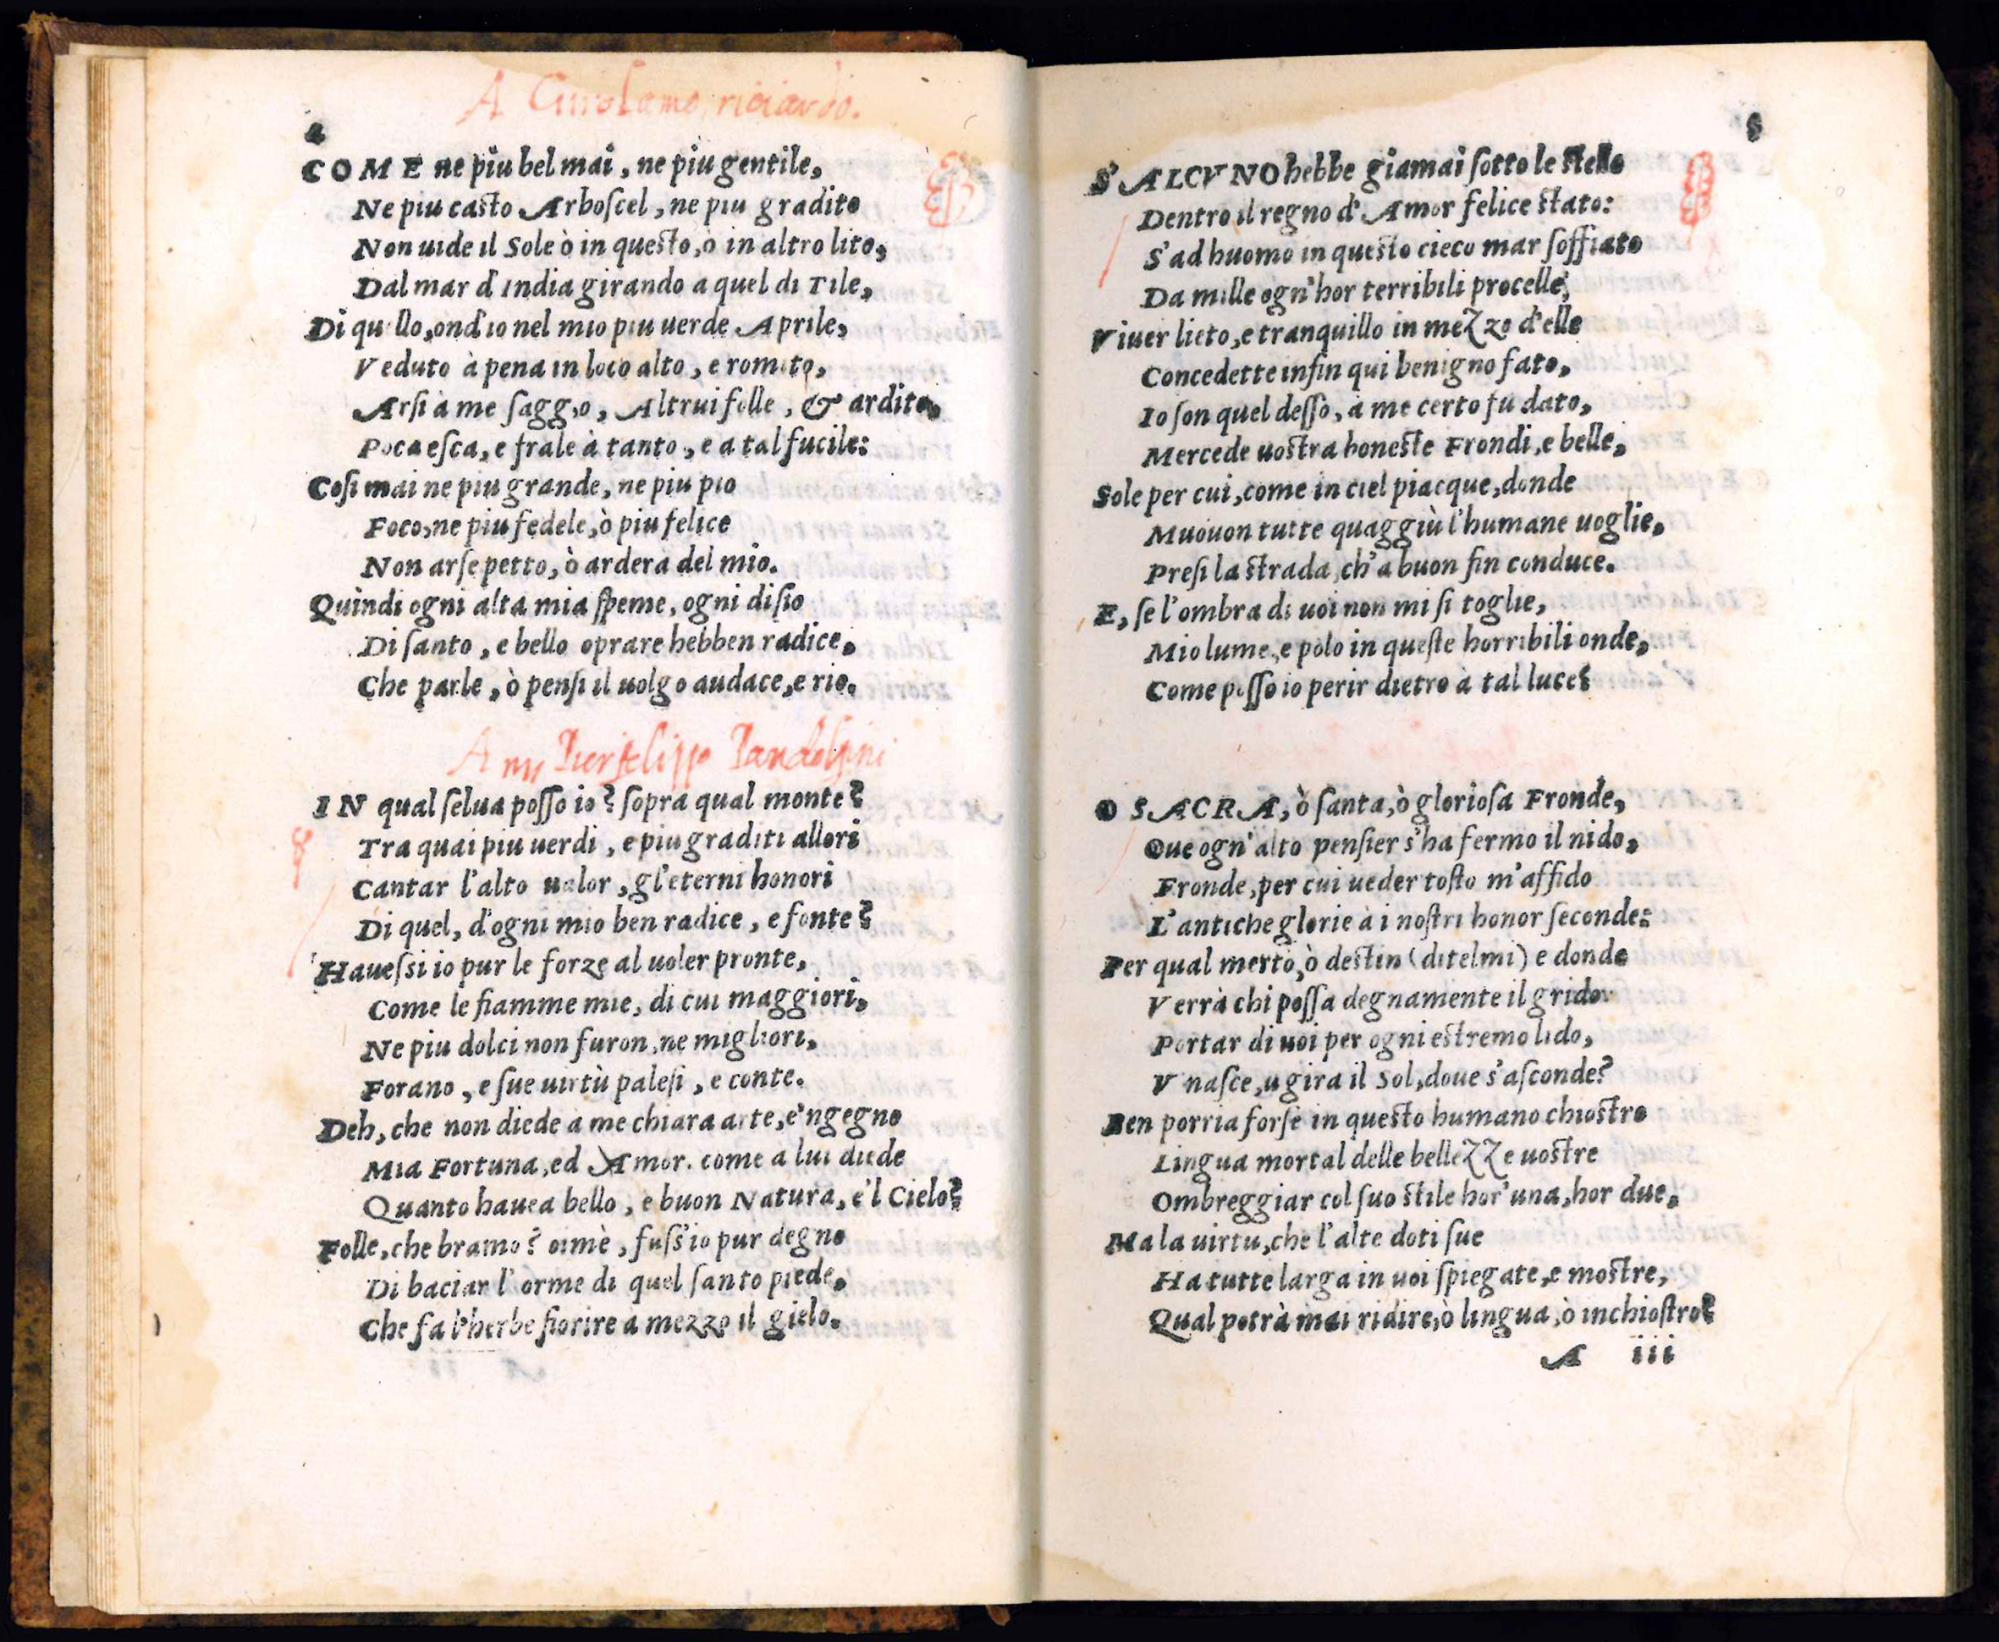 A Girolamo, riciardo.
COME ne piu bel mai, ne piu gentile,
Ne piu casto Arboscel, ne piu gradito
Non uide il Sole ò in questo, o in altro lito,
Dal mar d'India girando a quel di Tile,
Di quello, ond'io nel mio piu uerde Aprile,
Veduto à pena in loco alto, e romito,
Arsi à me saggio, Altrui folle, & ardito,
Poca esca, e frale à tanto, e a tal fucile:
Cosi mai ne piu grande, ne piu pio
Foco, ne piu fedele, ò piu felice
Non arse petto, ò ardera del mio.
Quindi ogni alta mia speme, ogni disio
Di santo, e bello oprare hebben radice,
Che parle, ò pensi il uolgo audace, e rio.
A m Pierfelippo Pandolfini
IN qual selua posso io? sopra qual monte?
Tra quai piu uerdi, e piu graditi allori
Cantar l'alto ualor, gl'eterni honori
Di quel, d'ogni mio ben radice, e fonte?
Hauessi io pur le forze al uoler pronte,
Come le fiamme mie, di cui maggiori,
Ne piu dolci non furon, ne migliori,
Forano, e sue uirtù palesi, e conte.
Deh, che non diede a me chiara arte, e'ngegno
Mia Fortuna, ed Amor, come a lui diede
Quanto hauea bello, e buon Natura, e'l Cielo?
Folle, che bramo? oimè, fuss'io pur degno
Di baciar l'orme di quel santo piede,
Che fa l'herbe fiorire a mezzo il gielo.
5
S'ALCVNO hebbe giamai sotto le stelle
Dentro il regno d'Amor felice stato:
S'ad huomo in questo cieco mar soffiato
Da mille ogn'hor terribili procelle,
Viuer lieto, e tranquillo in mezzo d'elle
Concedette infin qui benigno fato,
Io son quel desso, à me certo fu dato,
Mercede uostra honeste Frondi, e belle,
Sole per cui, come in ciel piacque, donde
Muouon tutte quaggiù l'humane uoglie,
Presi la strada, ch'a buon fin conduce.
E, se l'ombra di uoi non mi si toglie,
Mio lume, e polo in queste horribili onde,
Come posso io perir dietro à tal luce?
O SACRA, ò santa, ò gloriosa Fronde,
Oue ogn'alto pensier s'ha fermo il nido,
Fronde, per cui ueder tosto m'affido
L'antiche glorie à i nostri honor seconde:
Per qual merto, ò destin (ditelmi) e donde
Verrà chi possa degnamente il grido
Portar di uoi per ogni estremo lido,
V nasce, u gira il Sol, doue s'asconde?
Ben porria forse in questo humano chiostro
Lingua mortal delle bellezze uostre
Ombreggiar col suo stile hor'una, hor due,
Ma la uirtu, che l'alte doti sue
Ha tutte larga in uoi spiegate, e mostre,
Qual potrà mai ridire, ò lingua, ò inchiostro?
A iii